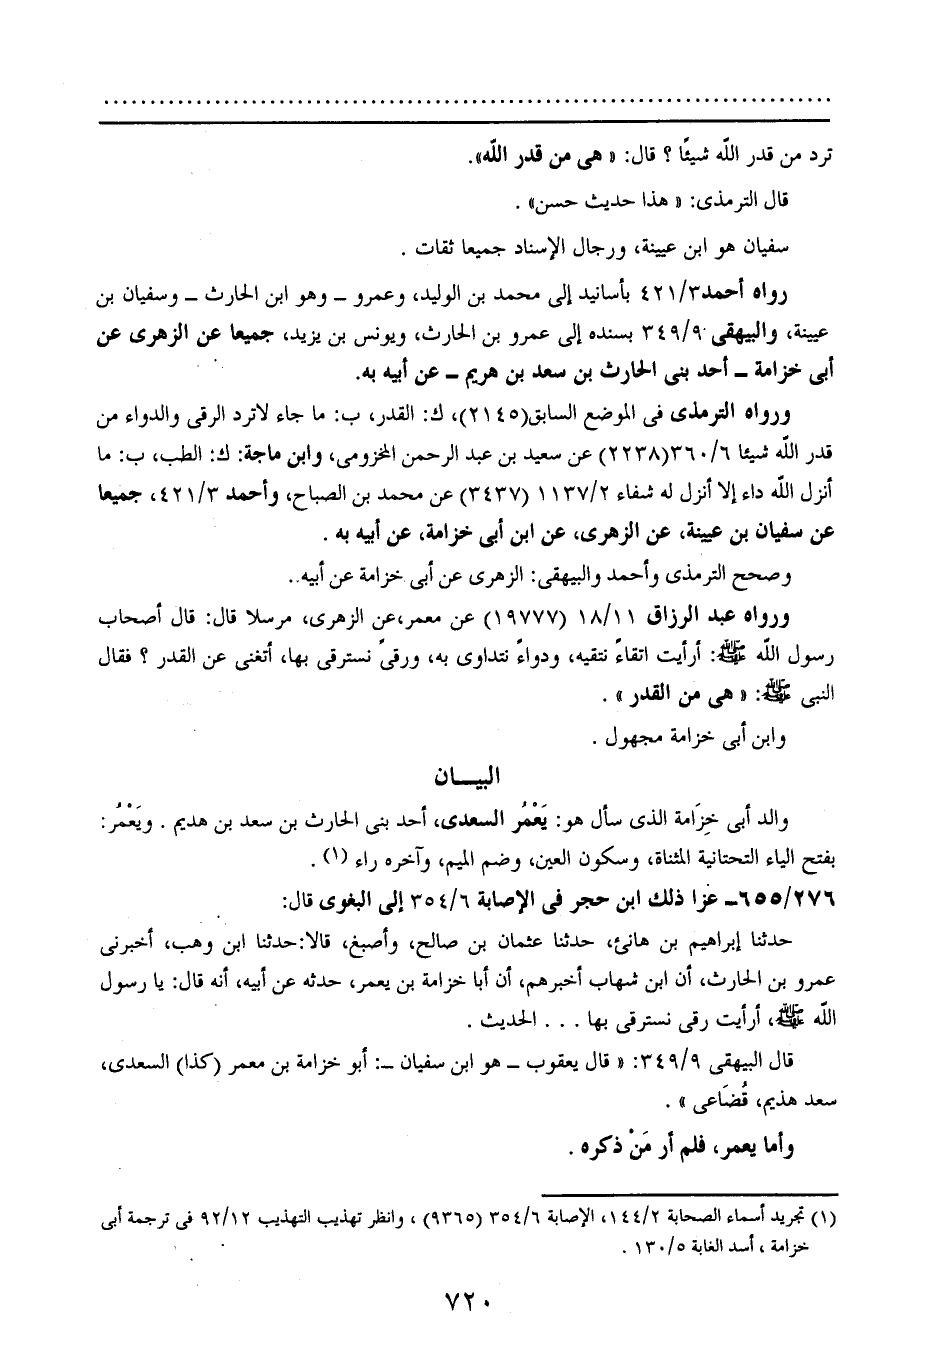 ترد من قدر اللّه شيئًا ؟ قال: « هى من قدر اللّه».
قال الترمذى: « هذا حديث حسن» .
سفيان هو ابن عيينة، ورجال الإسناد جميعا ثقات .
رواه أحمد٣/ ٤٢١ بأسانيد إلى محمد بن الوليد، وعمرو ــ وهو ابن الحارث ــ وسفيان بن
عيينة، والبيهقى ٩/ ٣٤٩ بسنده إلى عمرو بن الحارث، ويونس بن يزيد، جميعا عن الزهرى عن
أبى خزامة ــ أحد بنى الحارث بن سعد بن هريم ــ عن أبيه به.
ورواه الترمذى فى الموضع السابق(٢١٤٥)، ك: القدر، ب: ما جاء لاترد الرقى والدواء من
قدر اللّه شيئا ٦/ ٣٦٠(٢٢٣٨) عن سعيد بن عبد الرحمن المخزومى، وابن ماجة: ك: الطب، ب: ما
أنزل اللّه داء إلا أنزل له شفاء ٢/ ١١٣٧ (٣٤٣٧) عن محمد بن الصباح، وأحمد ٣/ ٤٢١، جميعا
عن سفيان بن عيينة، عن الزهرى، عن ابن أبى خزامة، عن أبيه به .
وصحح الترمذى وأحمد والبيهقى: الزهرى عن أبى خزامة عن أبيه..
ورواه عبد الرزاق ١١/ ١٨ (١٩٧٧٧) عن معمر،عن الزهرى، مرسلا قال: قال أصحاب
رسول اللّه ﷺ: أرأيت اتقاءً نتقيه، ودواءً نتداوى به، ورقىً نسترقى بها، أتغنى عن القدر ؟ فقال
النبى ﷺ: « هى من القدر » .
وابن أبى خزامة مجهول .
البيـــان
والد أبى خِزَامة الذى سأل هو: يَعْمُر السعدى، أحد بنى الحارث بن سعد بن هديم . ويَعْمُر:
بفتح الياء التحتانية المثناة، وسكون العين، وضم الميم، وآخره راء (١) .
٢٧٦/ ٦٥٥ــ عزا ذلك ابن حجر فى الإصابة ٦/ ٣٥٤ إلى البغوى قال:
حدثنا إبراهيم بن هانئ، حدثنا عثمان بن صالح، وأصبغ، قالا:حدثنا ابن وهب، أخبرنى
عمرو بن الحارث، أن ابن شهاب أخبرهم، أن أبا خزامة بن يعمر، حدثه عن أبيه، أنه قال: يا رسول
اللّه ﷺ، أرأيت رقى نسترقى بها . . . الحديث .
قال البيهقى ٩/ ٣٤٩: « قال يعقوب ــ هو ابن سفيان ــ: أبو خزامة بن معمر (كذا) السعدى،
سعد هذيم، قُضَاعى » .
وأما يعمر، فلم أر مَنْ ذكره .
(١) تجريد أسماء الصحابة ٢/ ١٤٤، الإصابة ٦/ ٣٥٤ (٩٣٦٥) ، وانظر تهذيب التهذيب ١٢/ ٩٢ فى ترجمة أبى
خزامة ، أسد الغابة ٥/ ١٣٠ .
٧٢٠